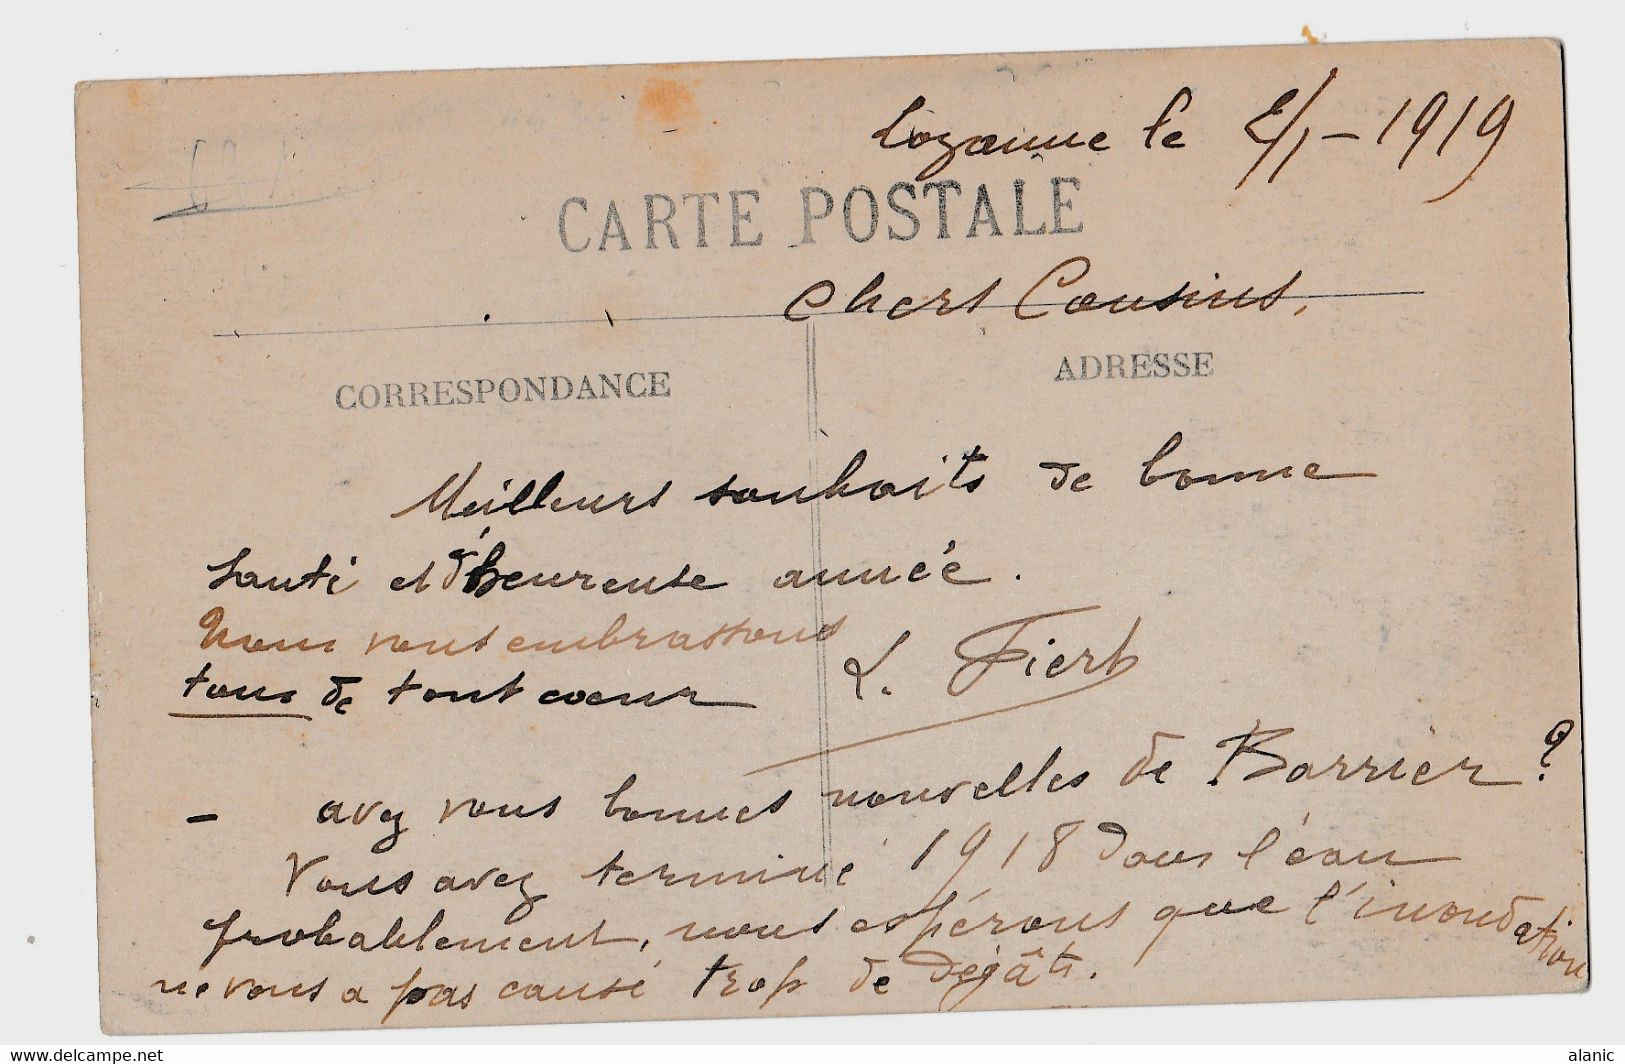 Lozanne le 2/1 - 1919
CARTE POSTALE
Chers Cousins,
CORRESPONDANCE
ADRESSE
Meilleurs souhaits de bonne
santé et d'heureuse année.
Nous vous embrassons
tous de tout coeur
L. Fierb
- avez vous bonnes nouvelles de Barrier ?
Vous avez terminé 1918 dans l'eau
probablement, nous espérons que l'inondation
ne vous a pas causé trop de dégâts.
www.delcampe.net
alanic